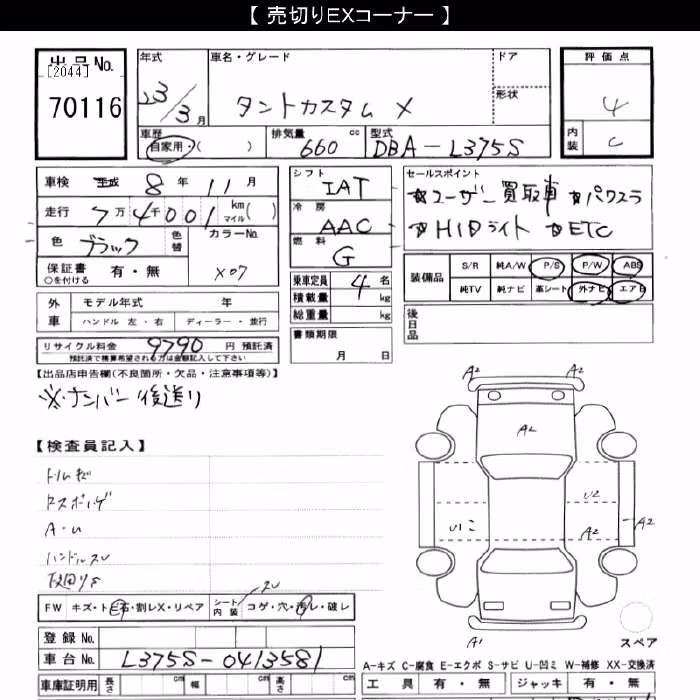 【 売切りEXコーナー 】
出品No.
[2044]
70116
年式
23/3月
車名・グレード
タントカスタム X
ドア
形状
評価点
4
内装
C
車歴
自家用・( )
排気量
660 cc
型式
DBA-L375S
車検 平成 8年 11月
走行 7万 4千 001 km マイル ( )
色 ブラック 色替
カラーNo.
X07
保証書 有・無
○を付ける
シフト
IAT
冷房
AAC
燃料
G
セールスポイント
☆ユーザー買取車 ☆パワスラ
☆HIDライト ☆ETC
装備品
S/R 純A/W P/S P/W ABS
純TV 純ナビ 革シート 外ナビ エアB
外車
モデル年式 年
ハンドル 左・右 ディーラー・並行
乗車定員 4名
積載量 kg
総重量 kg
後日品
リサイクル料金 9790 円 預託済
預託済で精算希望される方は金額記入して下さい
書類期限
月 日
【出品店申告欄(不良箇所・欠品・注意事項等)】
※ナンバー後送り
【検査員記入】
A-U
ハンドルスレ
A2 A2
A2
U2
U1
A2
A2
A1 A2
FW キズ・ト石・割レX・リペア
シート内装
コゲ・穴・汚レ・破レ
スレ
スペア
登録No.
車台No. L375S-0413581
A-キズ C-腐食 E-エクボ S-サビ U-凹ミ W-補修 XX-交換済
車庫証明用 長さ cm 幅 cm 高さ cm
工具 有・無 ジャッキ 有・無